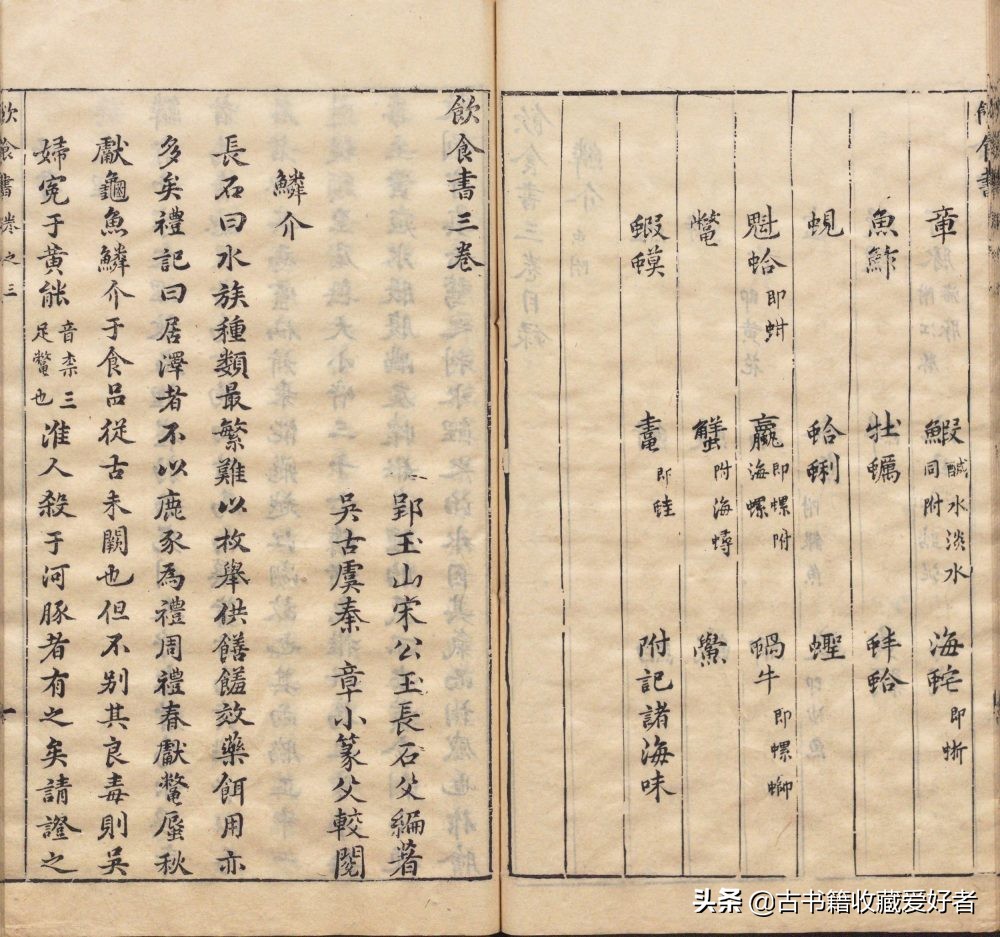 飲食書
章 鰕 鹹水淡水同附 海 即
魚鮓 牡蠣 蚌蛤
蜆 蛤蜊 蟶
魁蛤 即蚶 蠃 即螺附海螺 蝸牛 即螺螄
鼈 蟹 附海蟳 鱟
蝦蟆 鼃 即蛙 附記諸海味
飲食書三卷
郢玉山宋公玉長石父編著
吳古虞秦 章小篆父較閱
鱗介
長石曰水族種類最繁難以枚舉供饍饈效藥餌用亦
多矣禮記曰居澤者不以鹿豕為禮周禮春獻鼈蜃秋
獻龜魚鱗介于食品從古未闕也但不別其良毒則吳
婦冤于黄能音柰三足鼈也淮人殺于河豚者有之矣請證之
飲食書卷之三 一
头条 @古书籍收藏爱好者